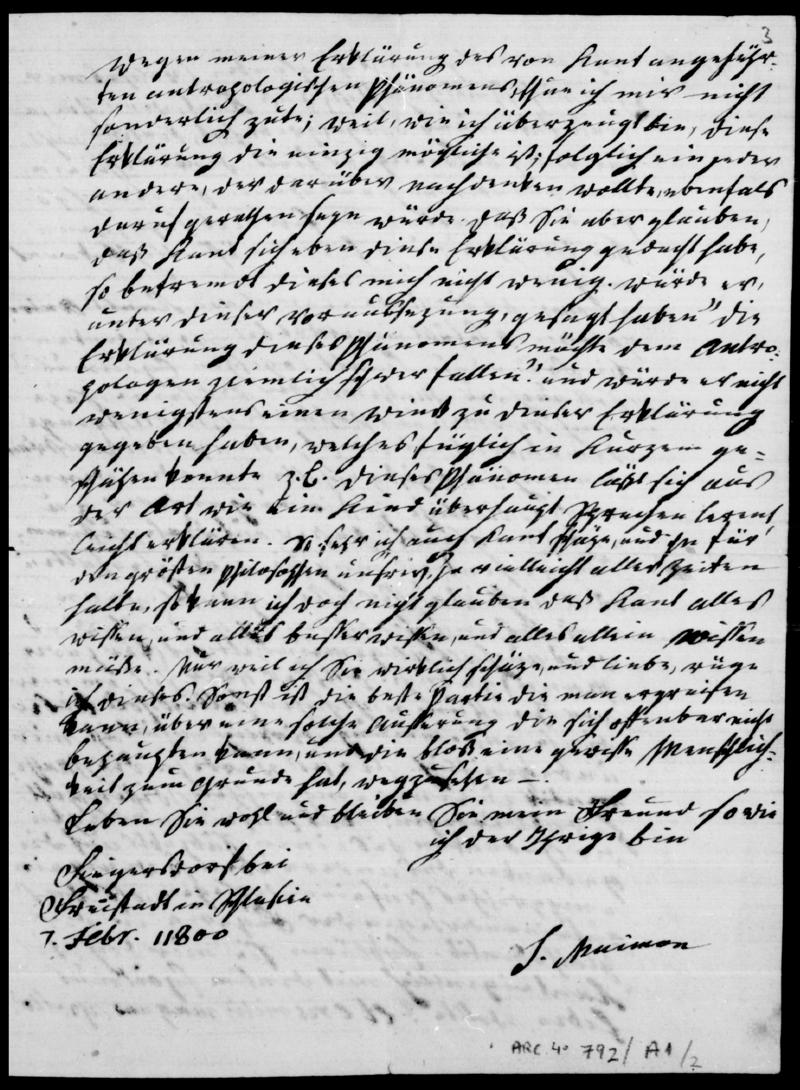 3
Wegen meiner Erklärung des von Kant angeführ-
ten antropologischen Phänomens, thue ich mir nicht
sonderlich zute; weil, wie ich überzeugt bin, diese
Erklärung die einzig mögliche ist; folglich ein jeder
andere, der darüber nachdenken wollte, ebenfals
darauf gerathen seyn würde. Daß Sie aber glauben,
daß Kant sich eben diese Erklärung gedacht habe,
so befremdt dieses mich nicht wenig. Würde er,
unter dieser Voraussezung, gesagt haben "die
Erklärung dieses Phänomens möchte dem Antro-
pologen ziemlich schwer fallen". und würde er nicht
wenigstens einen Wink zu dieser Erklärung
gegeben haben, welches füglich in Kurzem ge-
schähen konnte z.B. dieses Phänomen läßt sich aus
der Art wie ein Kind überhaupt sprechen lernt,
leicht erklären. So sehr ich auch Kant schäze, und ihn für
den größten Philosophen unsrer, ja vielleicht aller Zeiten
halte, so kann ich doch nicht glauben daß Kant alles
wissen, und alles besser wissen, und alles allein wissen
müße. Nur weil ich Sie wirklich schäze, und liebe, rüge
ich dieses. Sonst ist die beste Partie die man ergreifen
kann, über eine solche Äußerung die sich offenbar nicht
behaupten kann, und die bloß eine gewisse Menschlich-
keit zum Grunde hat, wegzusehen —.
Leben Sie wohl und bleiben Sie mein Freund so wie
ich der Ihrige bin
Siegersdorf bei
Freistadt in Schlesien
7. Febr. 1800
S. Maimon
ARC. 4° 792/ A1/2